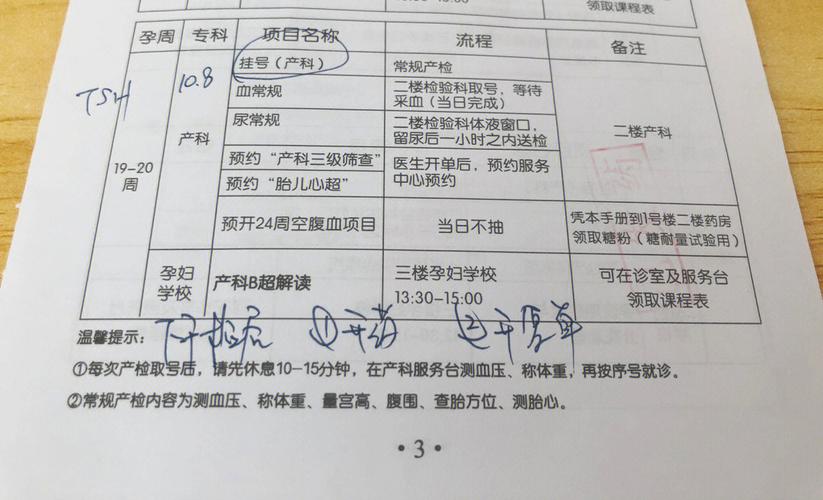 领取课程表
孕周 专科 项目名称 流程 备注
挂号（产科） 常规产检
10.8
TSH
血常规 二楼检验科取号，等待
采血（当日完成）
尿常规 二楼检验科体液窗口，
留尿后一小时之内送检
产科
二楼产科
19-20
周
预约“产科三级筛查” 医生开单后，预约服务
中心预约
预约“胎儿心超”
预开24周空腹血项目 当日不抽 凭本手册到1号楼二楼药房
领取糖粉（糖耐量试验用）
孕妇
学校
产科B超解读 三楼孕妇学校
13:30-15:00
可在诊室及服务台
领取课程表
①开药 ②开
温馨提示：
①每次产检取号后，请先休息10-15分钟，在产科服务台测血压、称体重，再按序号就诊。
②常规产检内容为测血压、称体重、量宫高、腹围、查胎方位、测胎心。
·3·